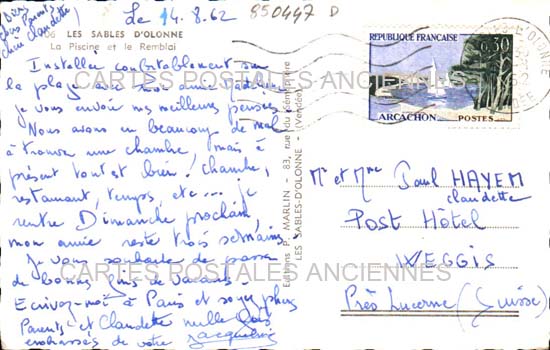 (Bien
chers Parents,
chère Claudette)
Le 14.8.62
850447 D
LES SABLES D'OLONNE
La Piscine et le Remblai
Installée confortablement sur
la plage avec mon amie
je vous envoie mes meilleures pensées.
Nous avons eu beaucoup de mal
à trouver une chambre, mais à
présent tout est bien! chambre,
restaurant, temps, etc... je
rentre Dimanche prochain,
mon amie reste trois semaines.
Je vous souhaite de passer
de bonnes fins de vacances.
Ecrivez-moi à Paris et soyez chers
Parents et Claudette mille fois
embrassés de votre Jacqueline
Editions P. MARLIN - 83, rue du
LES SABLES-D'OLONNE - (Vendée)
REPUBLIQUE FRANÇAISE
0,30
ARCACHON
POSTES
Mr et Mme Paul HAYEM
Claudette
Post Hôtel
WEGGIS
Près Lucerne (Suisse)
CARTES POSTALES ANCIENNES
CARTES POSTALES ANCIENNES